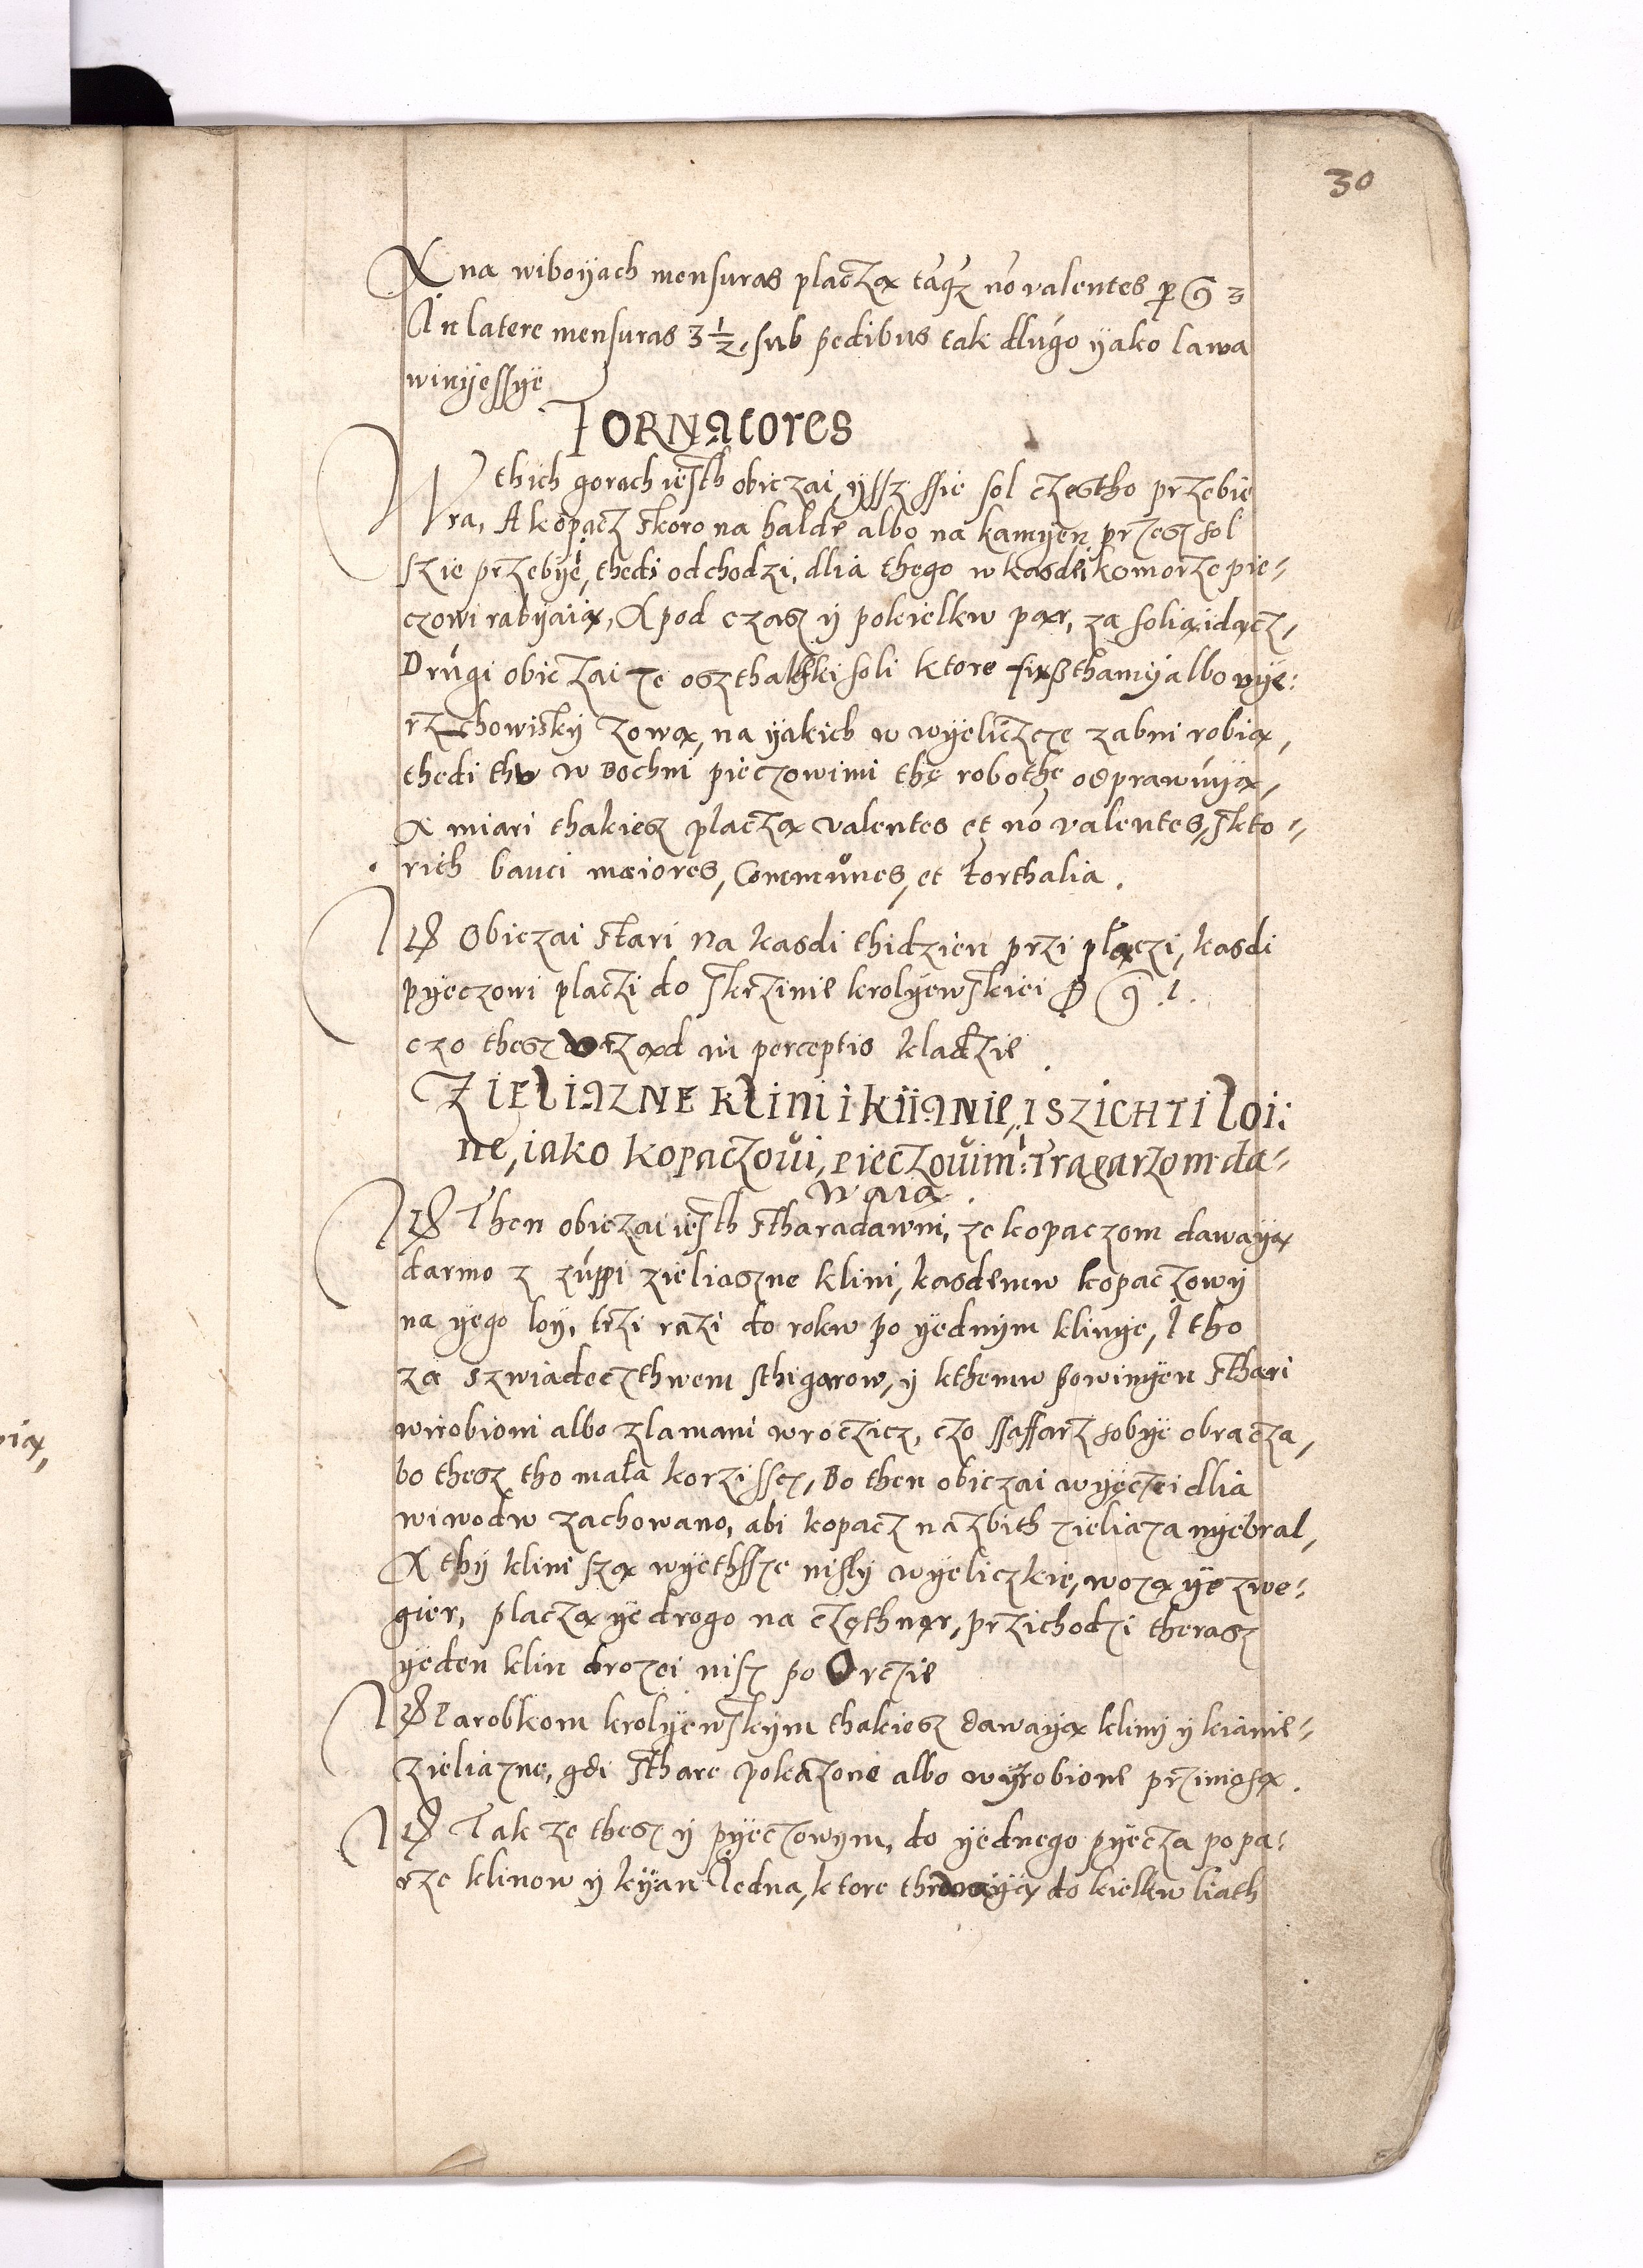 30
A na wiboyach mensuras placzą tãqȝ nõ valentes ꝑ g̃ 3
In latere mensuras 3 1/2, sub pedibus tak dlugo yako lawa
winyessye
TORNAtores
W thich gorach iesth obiczai, yssz ssie sol czestho przebie
ra, A kopacz skoro na halde albo na kamyen przesz sol
szie przebye, thedi odchodzi, dlia thego w kasdei komorze pie-
czowi rabyaią, A pod czasz y pokielku par, za solią idącz,
Drugi obiczai ze oszthathki soli ktore firsthamy albo wye:
rzchowisky zowa, na yakich w wyeliczcze zabni robią,
thedi thu w Bochni pieczowimi the robothe odprawuyą,
A miari thakiesz placzą valentes et nõ valentes, s kto-
rich bauci maiores, Communes, et forthalia.
Obiczai stari na kasdi thidzien przi placzi, kasdi
pyeczowi placzi do skrzinie krolyewskiei g̃ .1.
czo thesz vrzad in perceptis kladzie
ZIELIAZNE Klini i KIIANIE, I SZICHTI loi:
ne, iako kopaczovi, pieczovim: Tragarzom da-
waia.
Then obiczai iesth stharadawni, ze kopaczom dawayą
darmo z zuppi zieliaszne klini, kasdemu kopaczowy
na yego loy, trzi razi do roku po yednym klinye, I tho
za szwiadecztwem sthigarow, y kthemu powinyen sthari
wirobioni albo zlamani wroczicz, czo ssaffarz sobye obracza,
bo thesz tho mała korzissez, Bo then obiczai wyęczei dlia
wiwodu zachowano, abi kopacz nazbith zieliaza nyebral,
A thy klini szą wyethsze nisly wyeliczkie, wozą ye z we-
gier, placzą ye drogo na czethnar, przichodzi therasz
yeden klin drozei nisz po Orczie
Parobkom krolyewskym thakiesz dawayą klini y kianie-
zieliazne, gdi sthare pokazone albo wyrobione przinioszą.
Takze thesz y pyeczowym, do yednego pyecza po pa-
rze klinow y kyan Iedna, ktore thrwayą do kielku liath